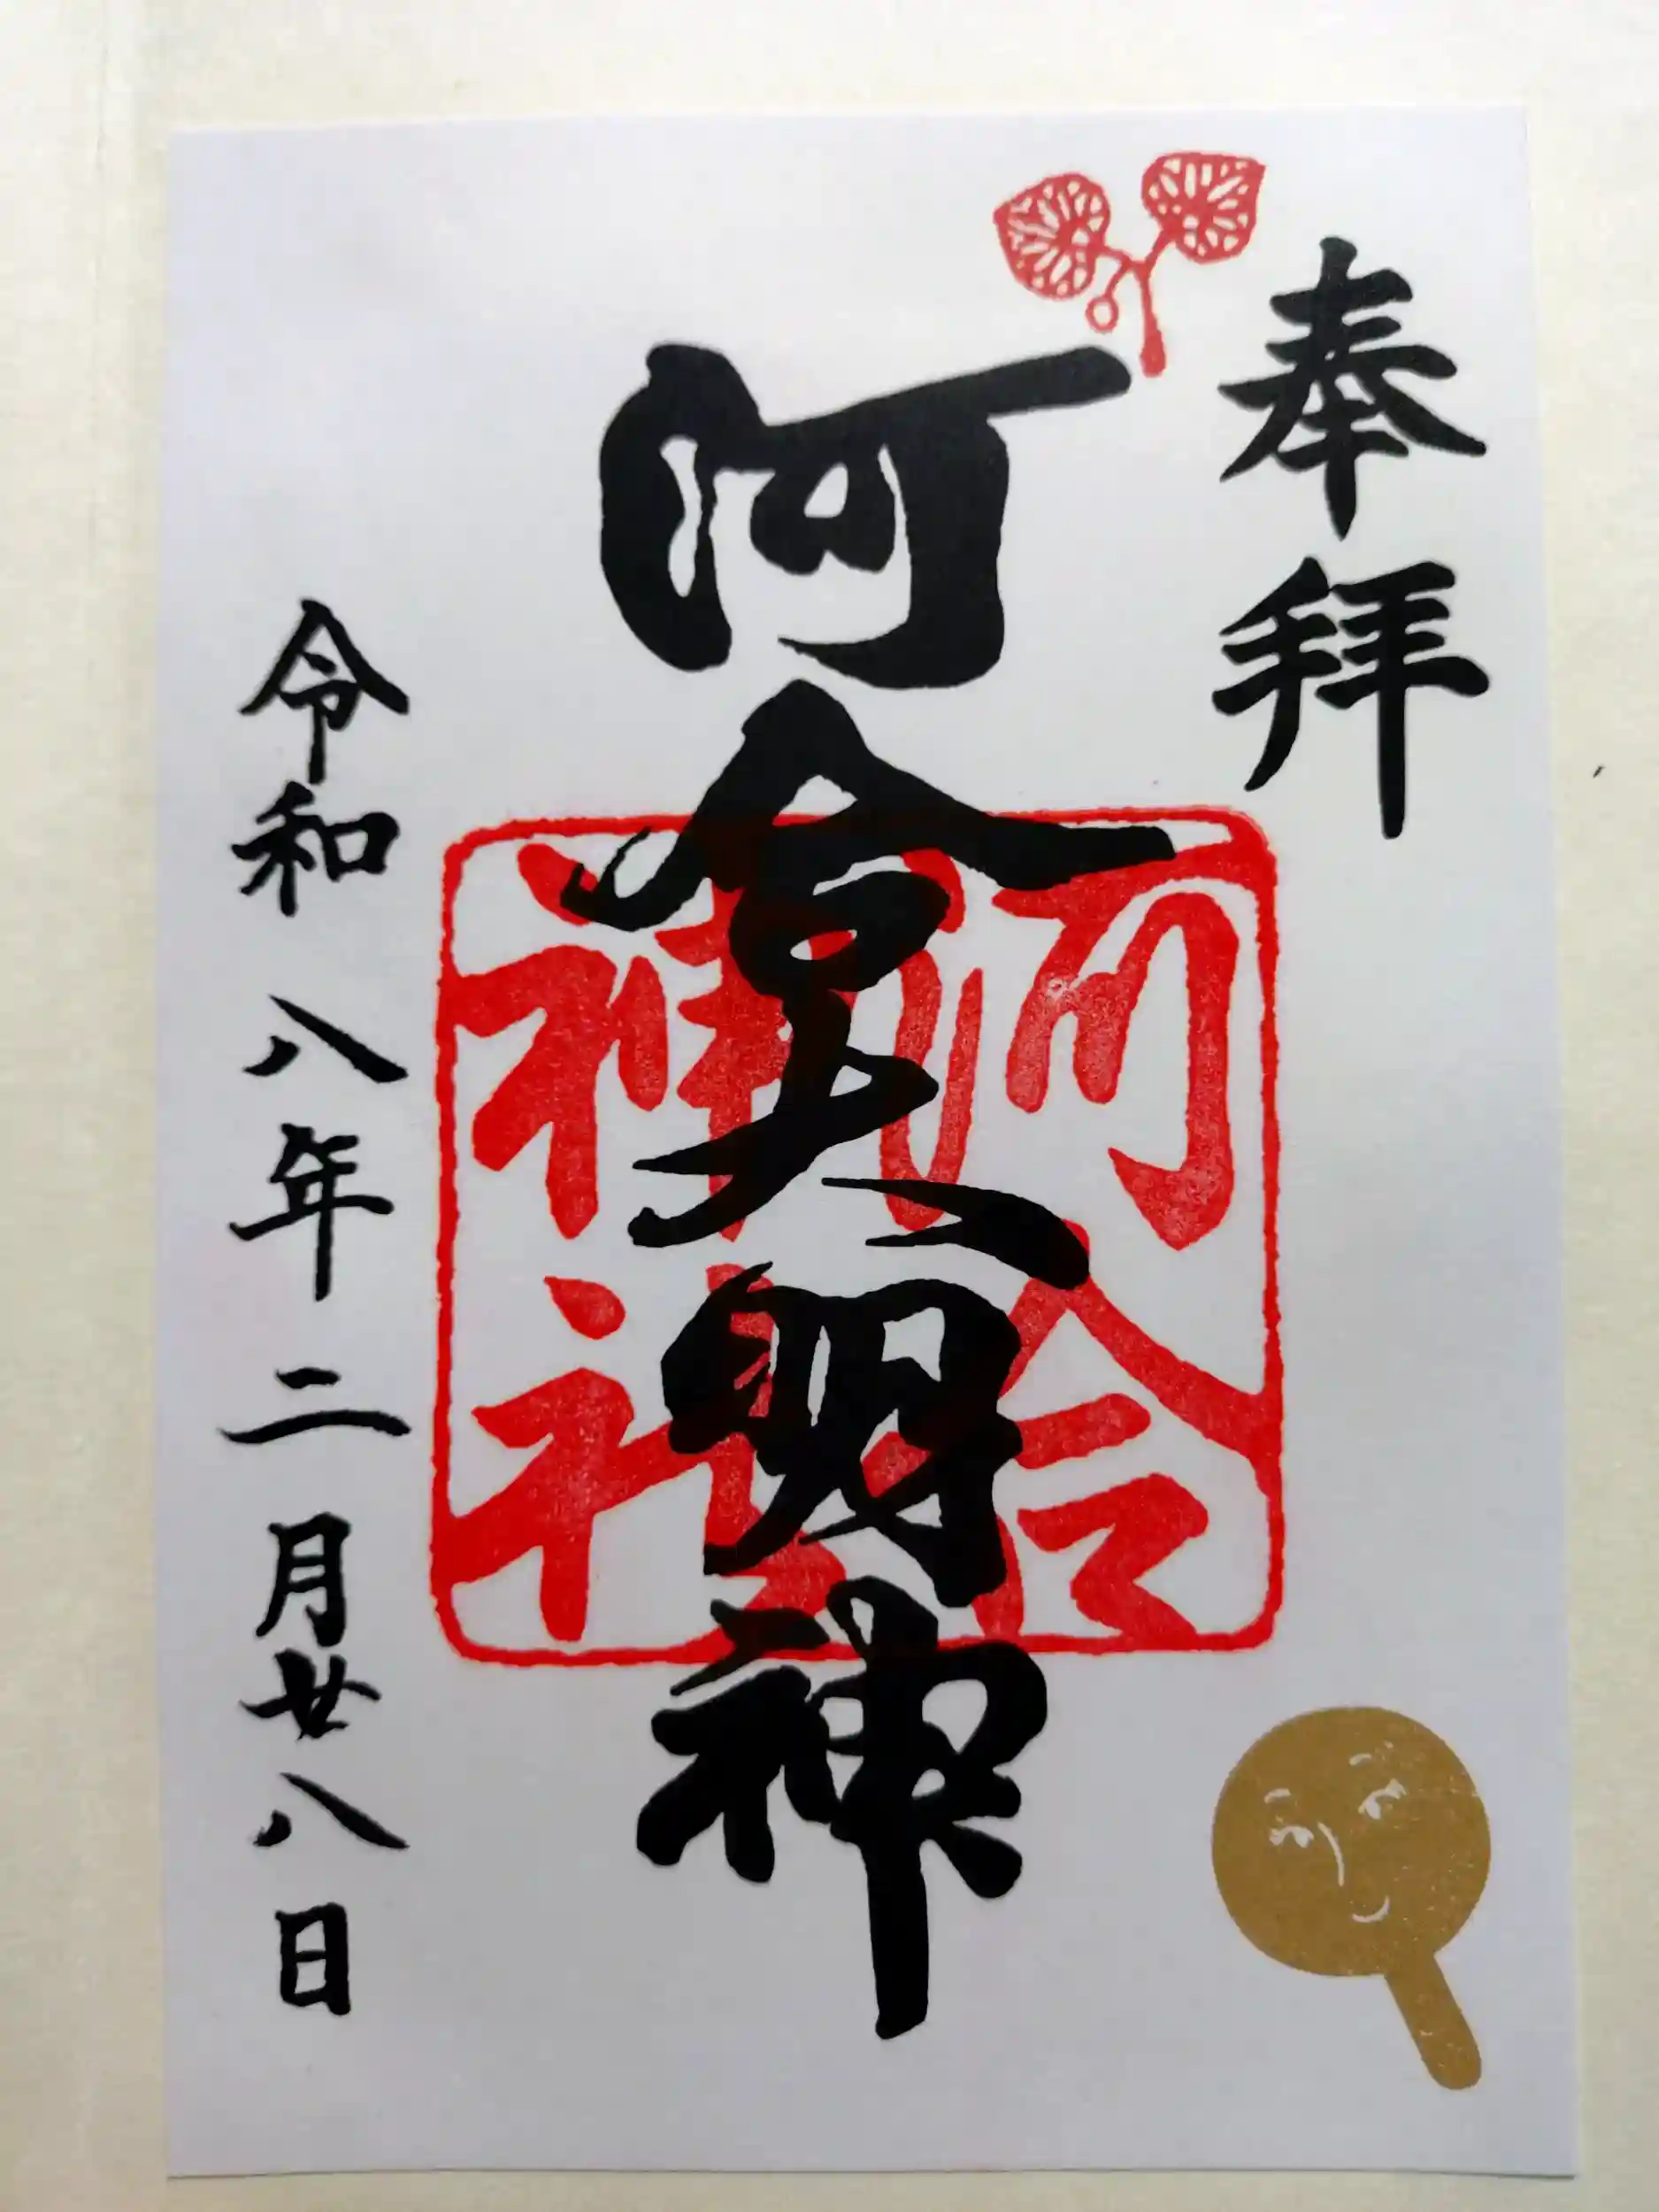 奉拝
河合大明神
河合神社
令和八年二月廿八日